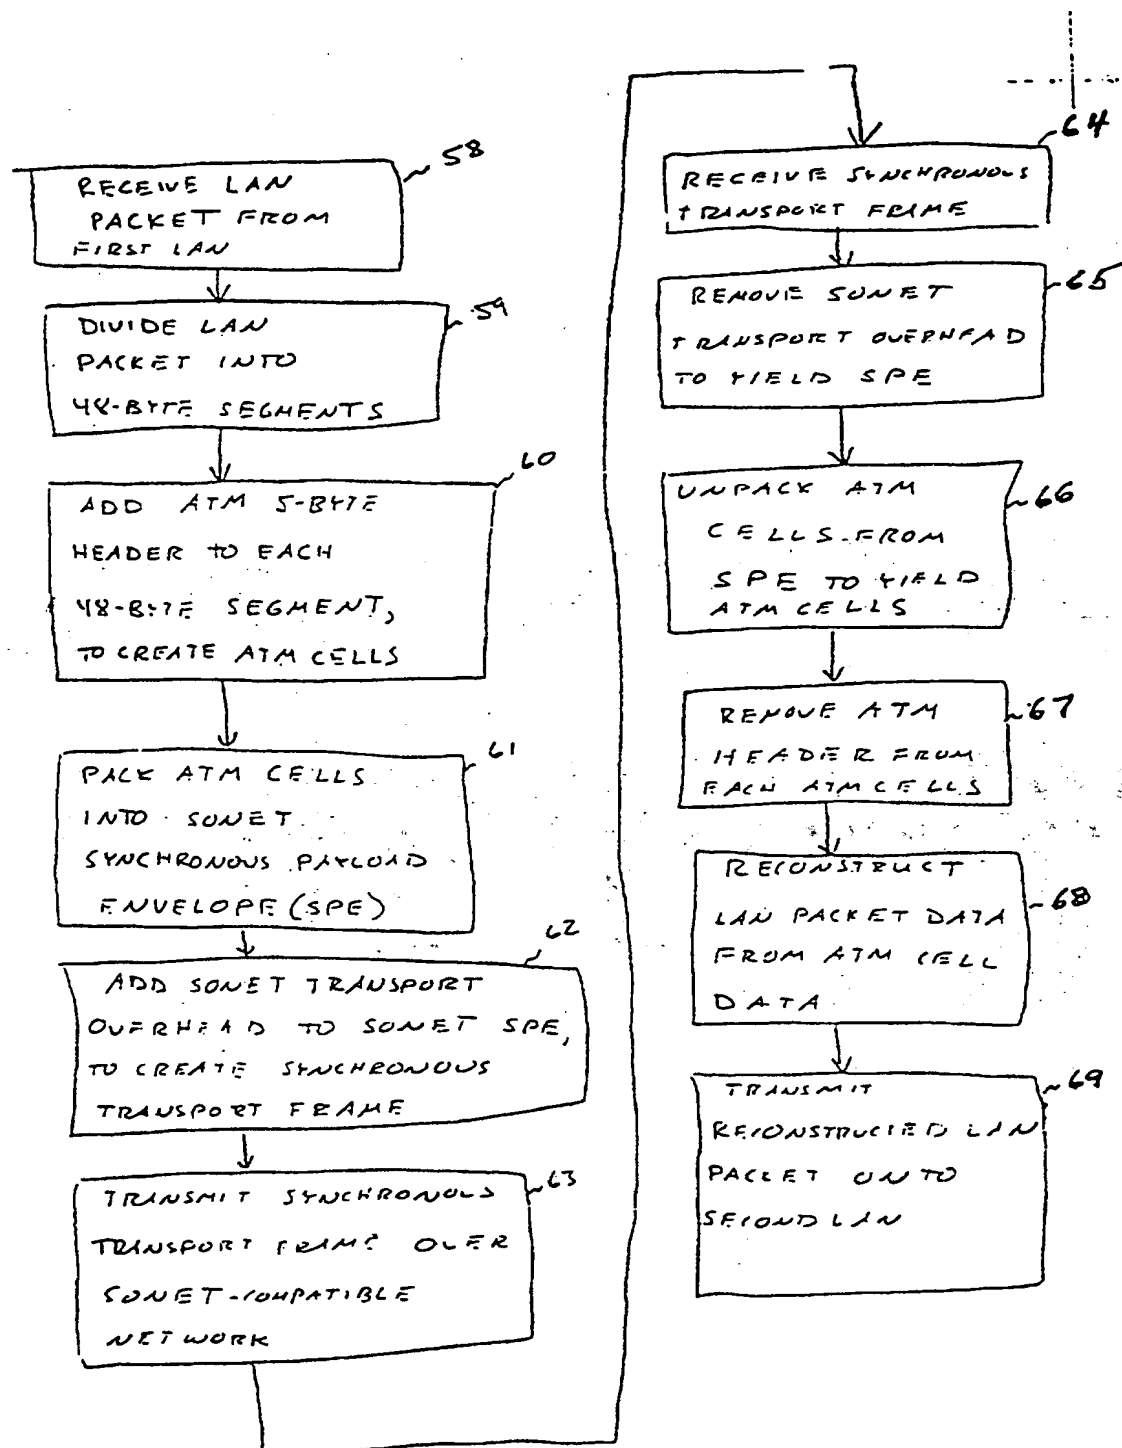 58
RECEIVE LAN
PACKET FROM
FIRST LAN
59
DIVIDE LAN
PACKET INTO
48-BYTE SEGMENTS
60
ADD ATM 5-BYTE
HEADER TO EACH
48-BYTE SEGMENT,
TO CREATE ATM CELLS
61
PACK ATM CELLS
INTO SONET
SYNCHRONOUS PAYLOAD
ENVELOPE (SPE)
62
ADD SONET TRANSPORT
OVERHEAD TO SONET SPE,
TO CREATE SYNCHRONOUS
TRANSPORT FRAME
63
TRANSMIT SYNCHRONOUS
TRANSPORT FRAME OVER
SONET-COMPATIBLE
NETWORK
64
RECEIVE SYNCHRONOUS
TRANSPORT FRAME
65
REMOVE SONET
TRANSPORT OVERHEAD
TO YIELD SPE
66
UNPACK ATM
CELLS FROM
SPE TO YIELD
ATM CELLS
67
REMOVE ATM
HEADER FROM
EACH ATM CELLS
68
RECONSTRUCT
LAN PACKET DATA
FROM ATM CELL
DATA
69
TRANSMIT
RECONSTRUCTED LAN
PACKET ON TO
SECOND LAN